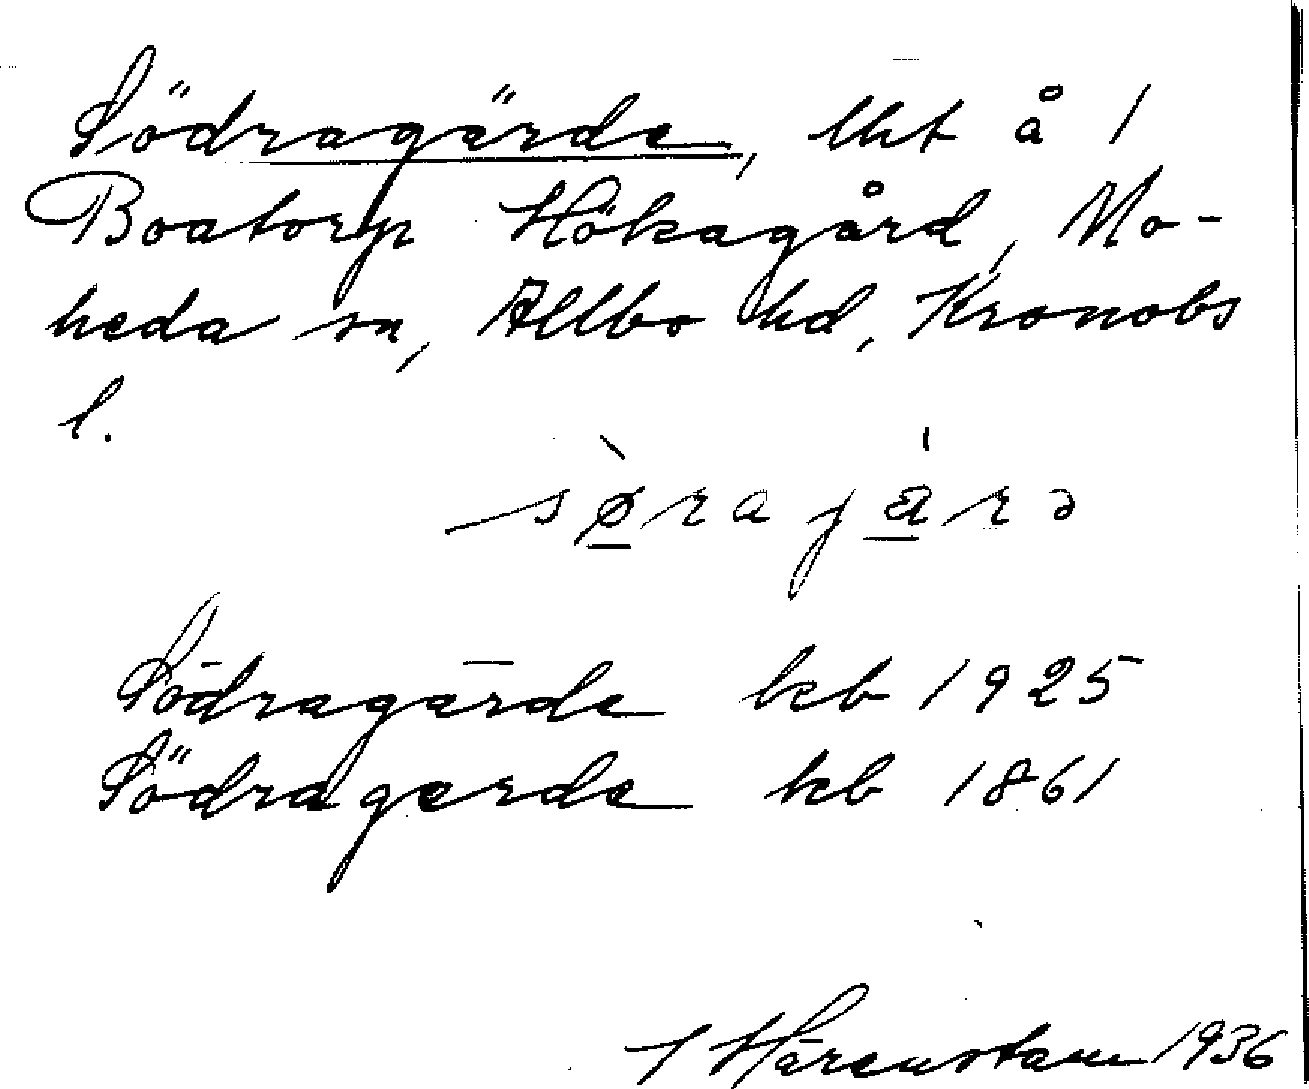 Södragärde, lht å 1
Boatorp Hökagård, Mo-
heda sn, Allbo hd, Kronobs
l.
sø̀rajä̀rə
Södragärde kb 1925
Södragerde kb 1861
Härenstam 1936